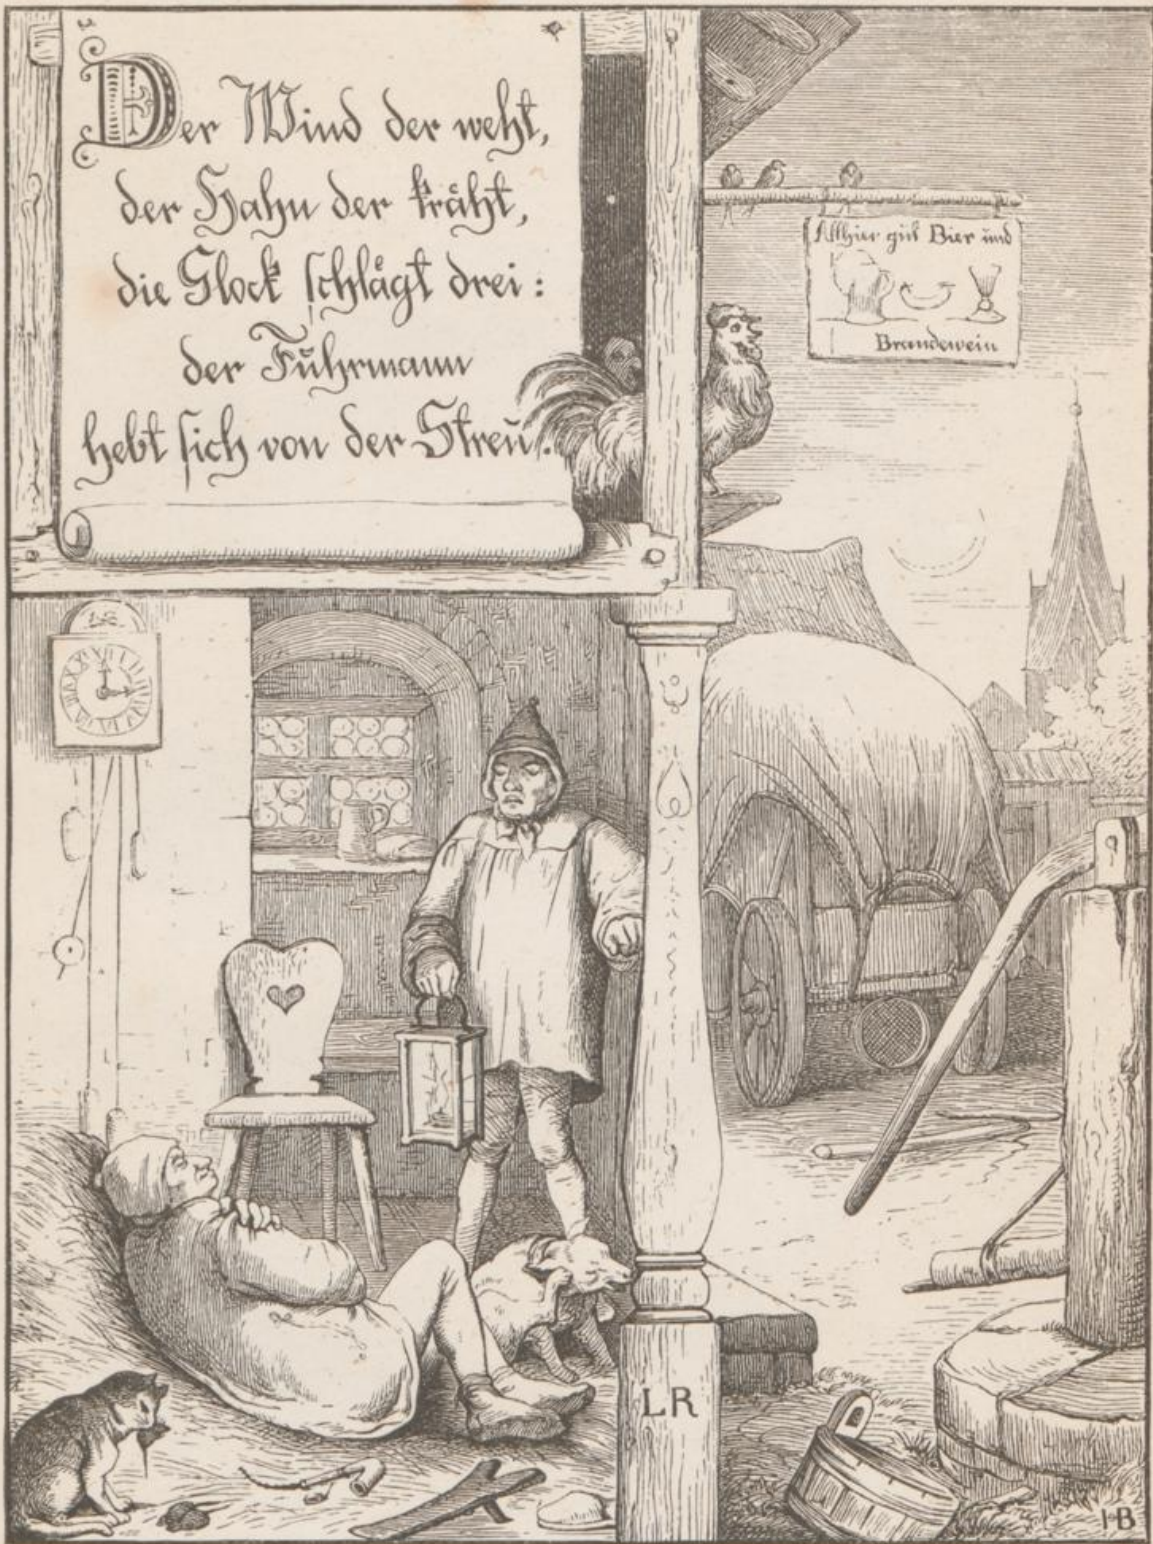 Der Wind der weht,
der Hahn der kräht,
die Glock schlägt drei:
der Fuhrmann
hebt sich von der Streu.
Allhier gut Bier und
Brandewein
LR
HB